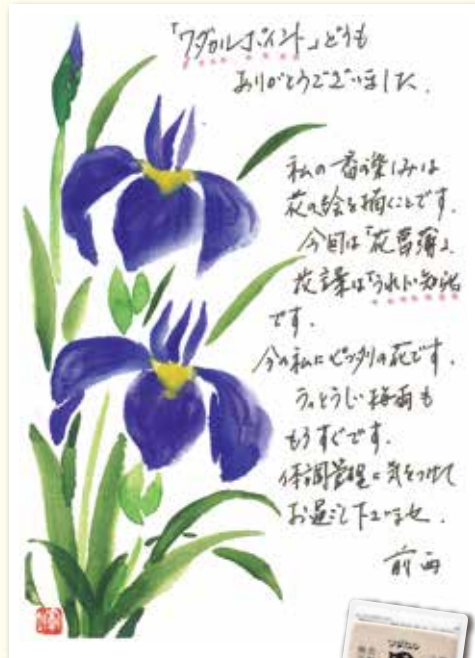 「ワダカルポイント」どうも
ありがとうございました.
私の一番の楽しみは
花の絵を描くことです.
今回は「花菖蒲」.
花言葉は「うれしい知らせ」
です.
今の私にピッタリの花です.
うっとうしい梅雨も
もうすぐです.
体調管理に気をつけて
お過ごし下さいませ.
ワダカル